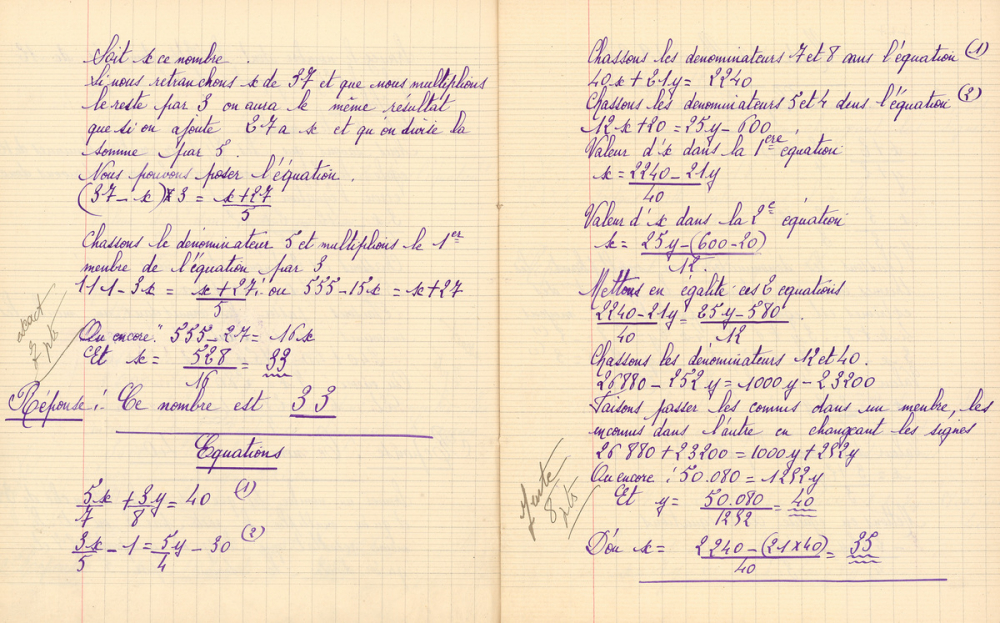 Soit x ce nombre.
Si nous retranchons x de 37 et que nous multiplions
le reste par 3 on aura le même résultat
que si on ajoute 27 a x et qu'on divise la
somme par 5.
Nous pouvons poser l'équation.
(37 - x) x 3 = x + 27 / 5
Chassons le dénominateur 5 et multiplions le 1er
menbre de l'équation par 3
111 - 3x = x + 27 / 5 ou 555 - 15x = x + 27
Ou encore: 555 - 27 = 16x
Et x = 528 / 16 = 33
exact
7 pts
Réponse: Ce nombre est 33
Equations
5x / 7 + 3y / 8 = 40 (1)
3x / 5 - 1 = 5y / 4 - 30 (2)
Chassons les dénominateurs 7 et 8 dans l'équation (1)
40x + 21y = 2240
Chassons les dénominateurs 5 et 4 dans l'équation (2)
12x + 20 = 25y - 600
Valeur d'x dans la 1ere équation
x = 2240 - 21y / 40
Valeur d'x dans la 2e équation
x = 25y - (600 - 20) / 12.
Mettons en égalité ces 2 equations
2240 - 21y / 40 = 25y - 580 / 12
Chassons les dénominateurs 12 et 40.
26880 - 252y = 1000y - 23200
Faisons passer les connus dans un menbre, les
inconnus dans l'autre en changeant les signes
26880 + 23200 = 1000y + 252y
Ou encore: 50.080 = 1252y
Et y = 50.080 / 1252 = 40
Juste
8 pts
D'ou x = 2240 - (21 x 40) / 40 = 35